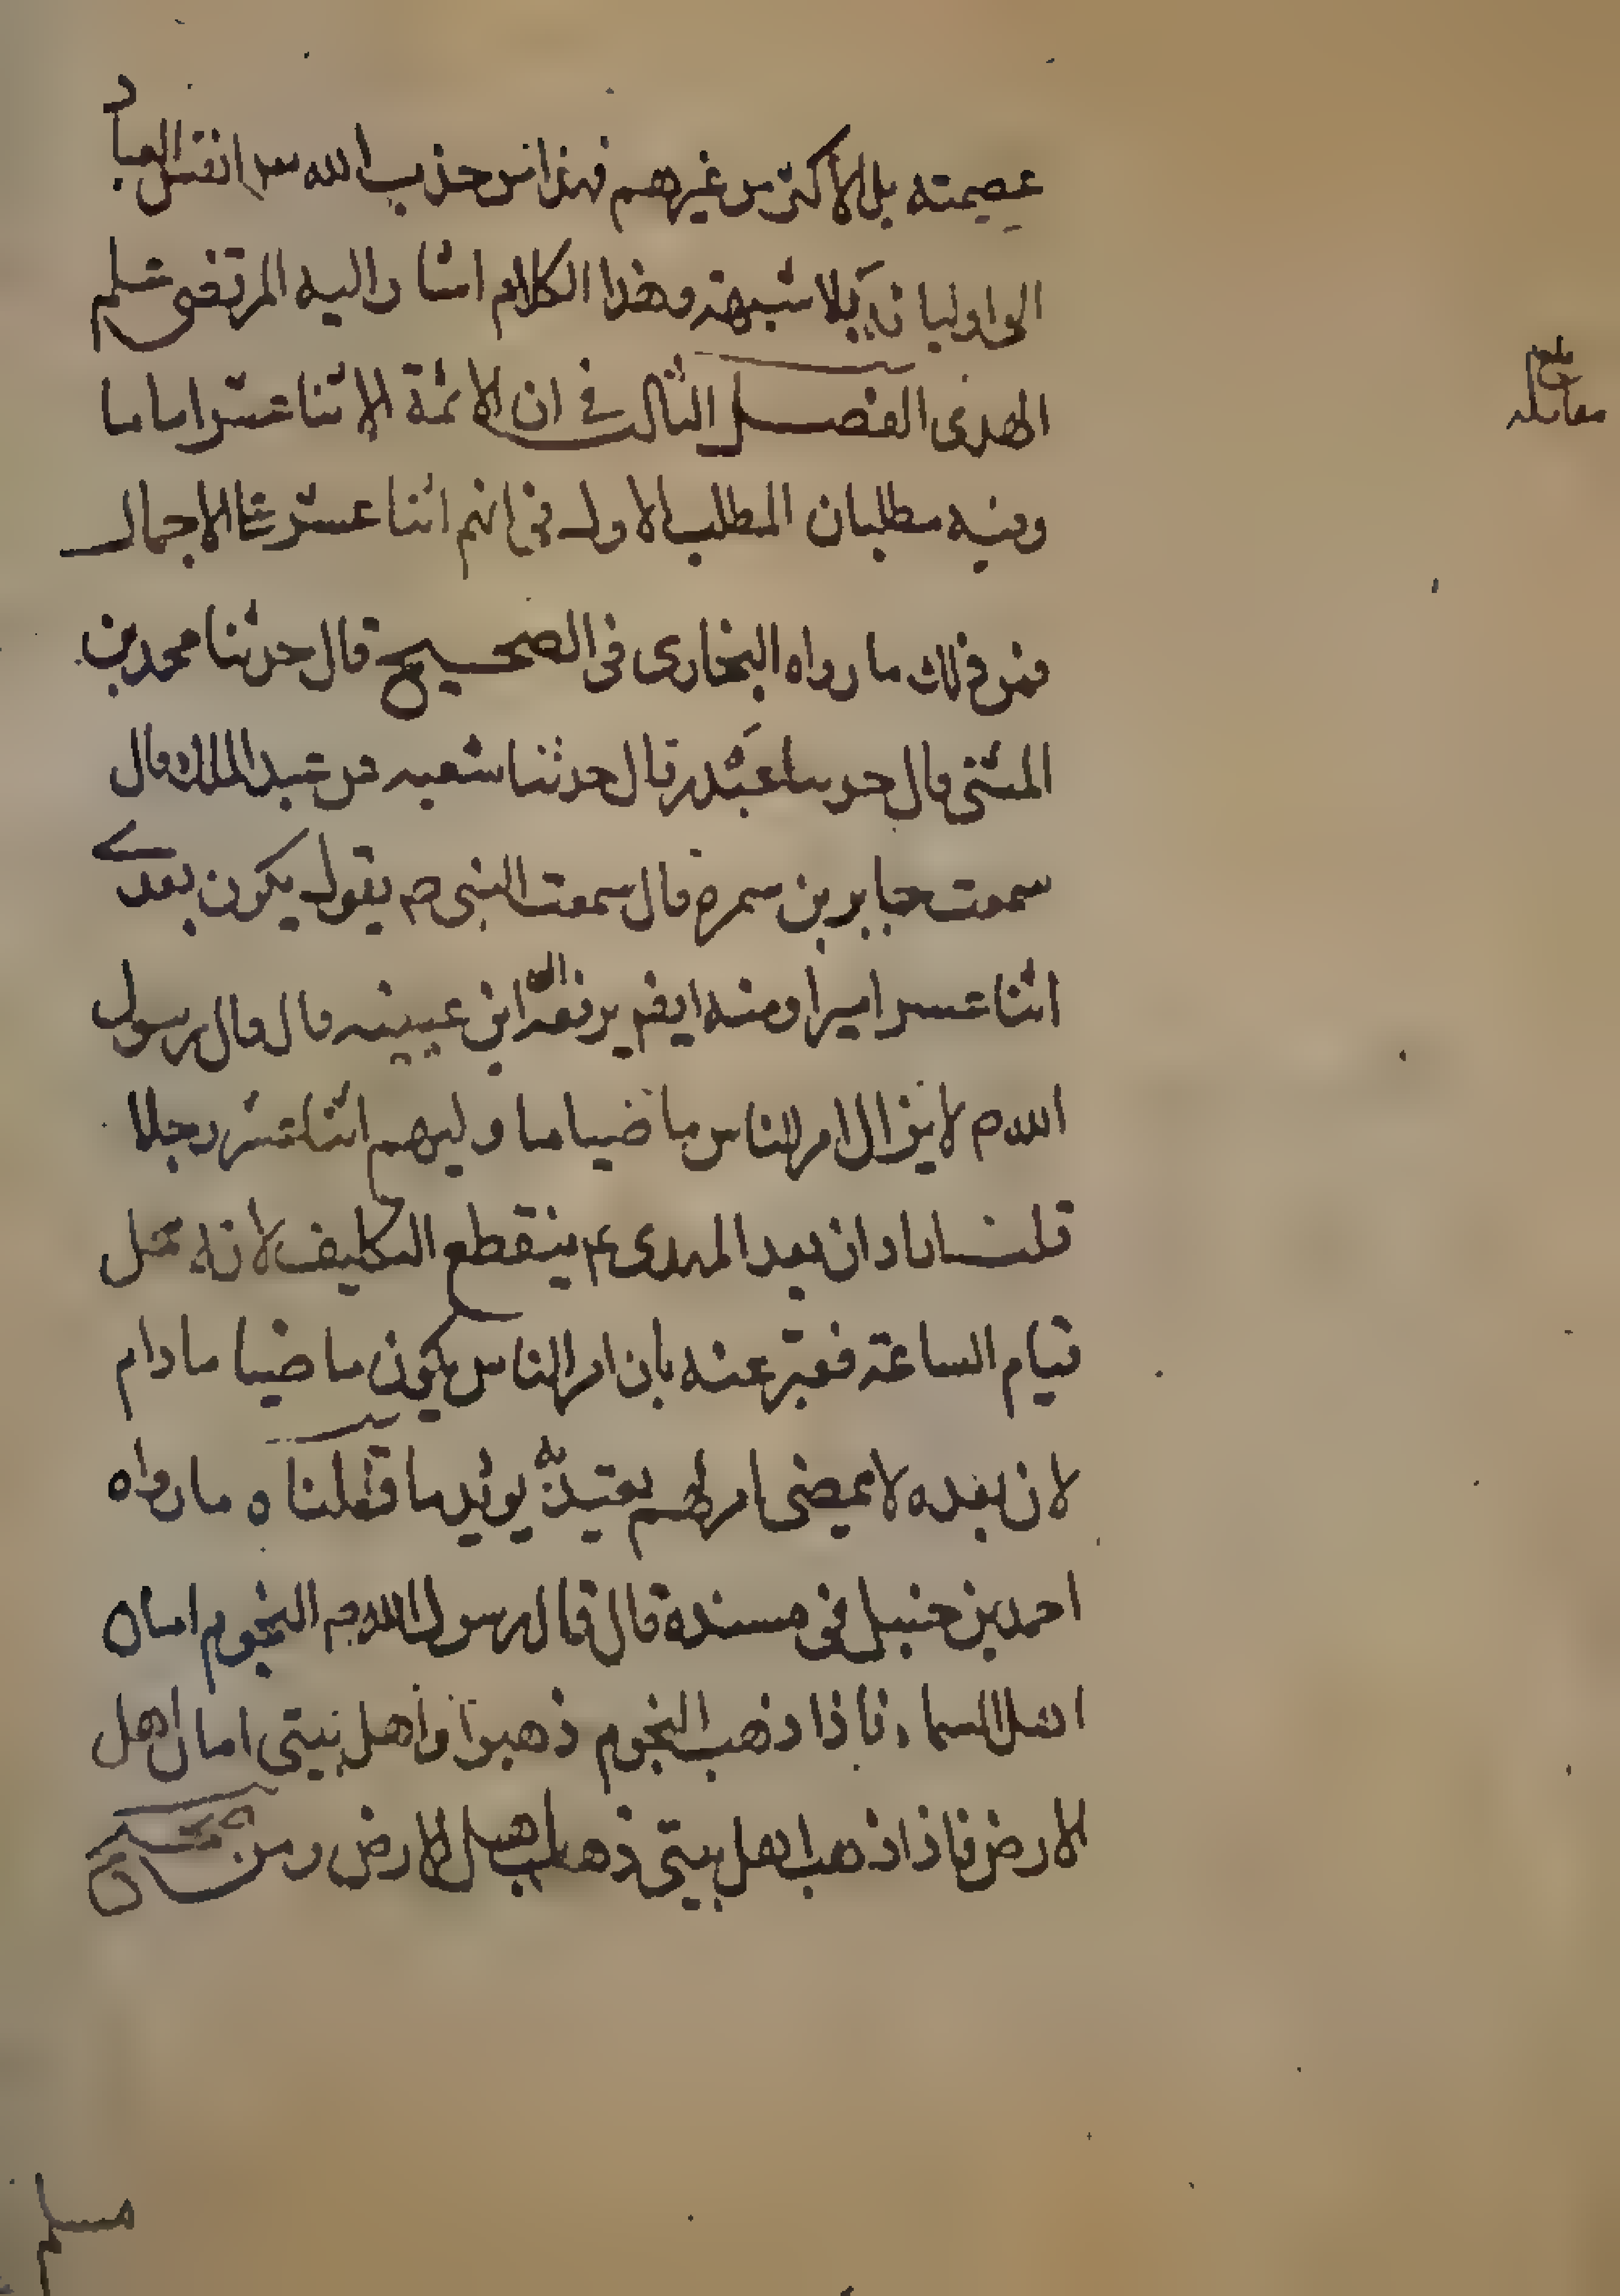 عصمته بل الاكثر من غيرهم فهذا من جذب الله انفس العباد
الى اوليائه بلا شبهة وهذا الكلام اشار اليه المرتضى علم
الهدى الفصل الثالث في ان الائمة الاثنا عشر اماما
وفيه مطلبان المطلب الاول في انهم اثنا عشر على الاجمال
فمن ذلك ما رواه البخارى فى الصحيح قال حدثنا محمد بن
المثنى قال حدثنا غندر قال حدثنا شعبه عن عبد الملك قال
سمعت جابر بن سمره قال سمعت النبى ص يقول يكون بعدے
اثنا عشر اميرا ومنه ايضم يرفعه الى ابن عيينه قال قال رسول
الله ص لا يزال امر الناس ماضيا ما وليهم اثنا عشر رجلا
قلت اراد ان بعد المهدى ع ينقطع التكليف لانه
قيام الساعة فعبر عنه بان امر الناس يكون ماضيا ما دام
لان بعده لا يمضى امر لهم يؤيد ما قلناه ما رواه
احمد بن حنبل فى مسنده قال قال رسول الله ص النجوم امان
اهل السماء فاذا ذهب النجوم ذهبوا واهل بيتى امان اهل
الارض فاذا ذهب اهل بيتى ذهب اهل الارض ومن
بلغ
مقابله
مسلم